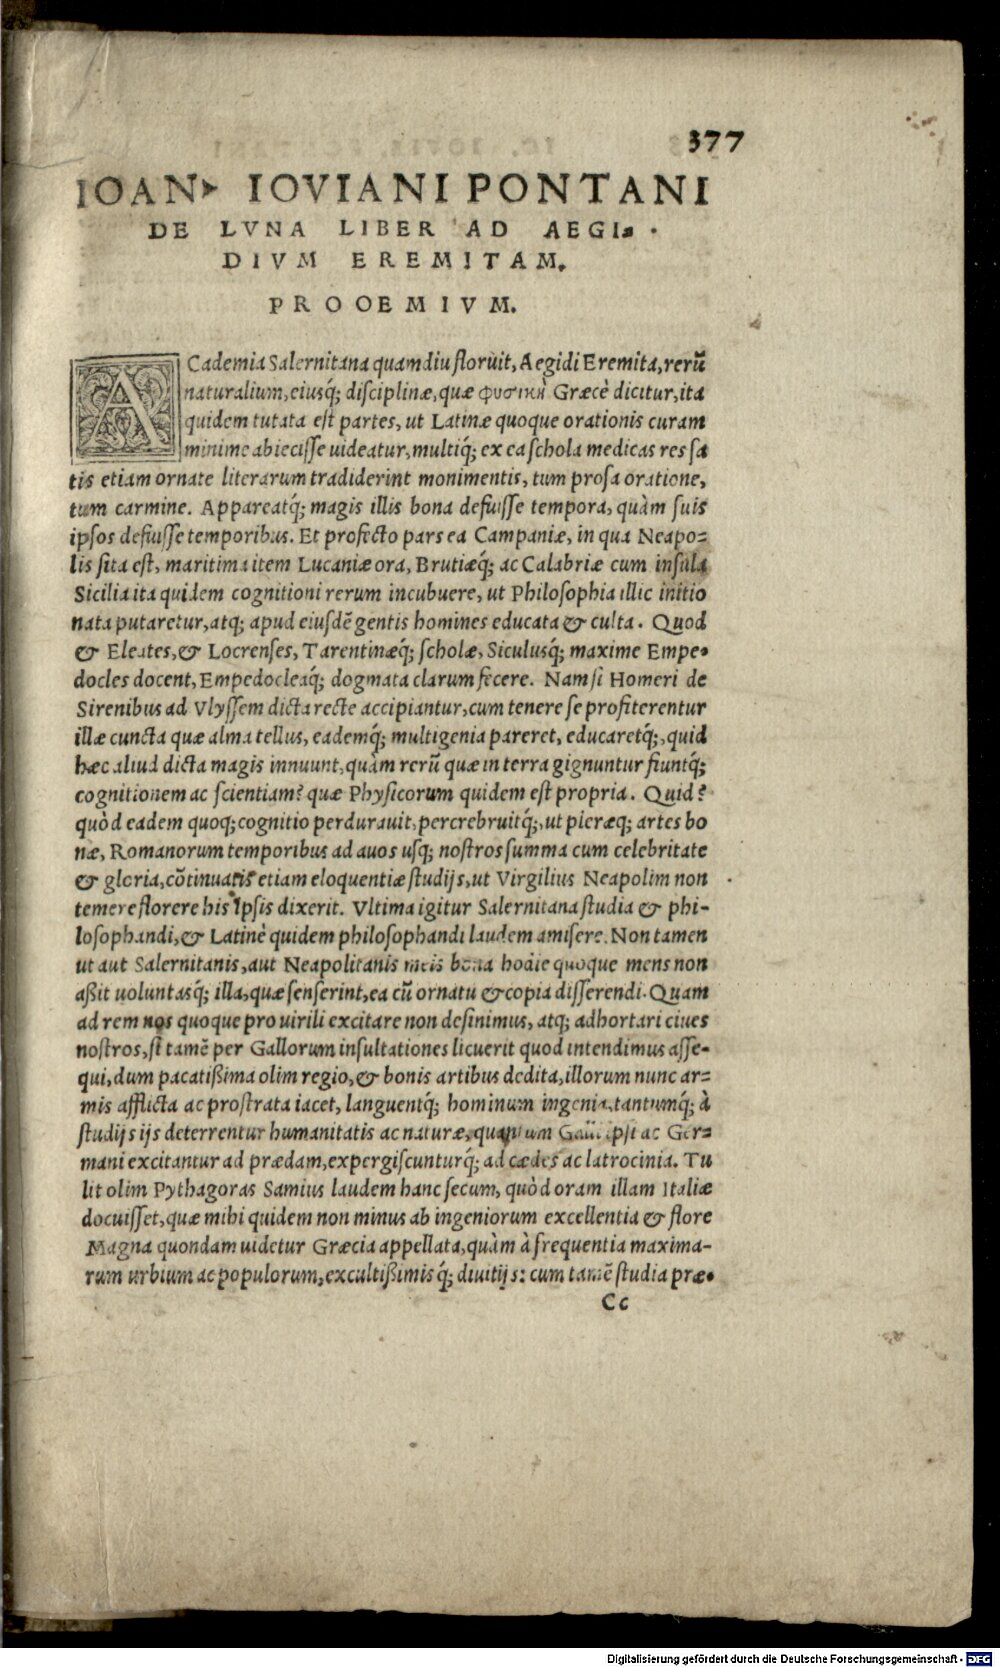 377
IOAN. IOVIANI PONTANI
DE LVNA LIBER AD AEGI-
DIVM EREMITAM.
PROOEMIVM.
ACademia Salernitana quamdiu floruit, Aegidi Eremita, rerū
naturalium, eiusq́; disciplinæ, quæ φυσικὴ Græcè dicitur, ita
quidem tutata est partes, ut Latinæ quoque orationis curam
minime abiecisse uideatur, multiq́; ex ea schola medicas res sa
tis etiam ornate literarum tradiderint monimentis, tum prosa oratione,
tum carmine. Appareatq́; magis illis bona defuisse tempora, quàm suis
ipsos defuisse temporibus. Et profecto pars ea Campaniæ, in qua Neapo-
lis sita est, maritima item Lucaniæ ora, Brutiæq́; ac Calabriæ cum insula
Sicilia ita quidem cognitioni rerum incubuere, ut Philosophia illic initio
nata putaretur, atq; apud eiusdē gentis homines educata & culta. Quod
& Eleates, & Locrenses, Tarentinæq́; scholæ, Siculusq́; maxime Empe-
docles docent, Empedocleaq́; dogmata clarum fecere. Nam si Homeri de
Sirenibus ad Vlyssem dicta recte accipiantur, cum tenere se profiterentur
illæ cuncta quæ alma tellus, eademq́; multigenia pareret, educaretq́;, quid
hæc aliud dicta magis innuunt, quàm rerū quæ in terra gignuntur fiuntq́;
cognitionem ac scientiam? quæ Physicorum quidem est propria. Quid?
quòd eadem quoq; cognitio perdurauit, percrebruitq́;, ut pleræq; artes bo
næ, Romanorum temporibus ad auos usq; nostros summa cum celebritate
& gloria, cōtinuatis etiam eloquentiæ studijs, ut Virgilius Neapolim non
temere florere his ipsis dixerit. Vltima igitur Salernitana studia & phi-
losophandi, & Latinè quidem philosophandi laudem amisere. Non tamen
ut aut Salernitanis, aut Neapolitanis meis bona hodie quoque mens non
aßit uoluntasq́; illa, quæ senserint, ea cū ornatu & copia disserendi. Quam
ad rem nos quoque pro uirili excitare non desinimus, atq; adhortari ciues
nostros, si tamē per Gallorum insultationes licuerit quod intendimus asse-
qui, dum pacatißima olim regio, & bonis artibus dedita, illorum nunc ar-
mis afflicta ac prostrata iacet, languentq́; hominum ingenia, tantumq́; à
studijs ijs deterrentur humanitatis ac naturæ, quantum Galli ipsi ac Ger-
mani excitantur ad prædam, expergiscunturq́; ad cædes ac latrocinia. Tu
lit olim Pythagoras Samius laudem hanc secum, quòd oram illam Italiæ
docuisset, quæ mihi quidem non minus ab ingeniorum excellentia & flore
Magna quondam uidetur Græcia appellata, quàm à frequentia maxima-
rum urbium ac populorum, excultißimisq́; diuitijs: cum tamē studia præ-
Cc
Digitalisierung gefördert durch die Deutsche Forschungsgemeinschaft - DFG